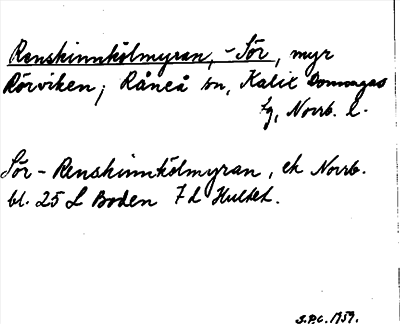 Renskinnkölmyran, -Sör, myr
Rörviken, Råneå sn, Kalix Domsagas
tg, Norrb. l.
Sör-Renskinnkölmyran, ek Norrb.
bl. 25 L Boden 7 d Hultet.
S.P.C. 1959.